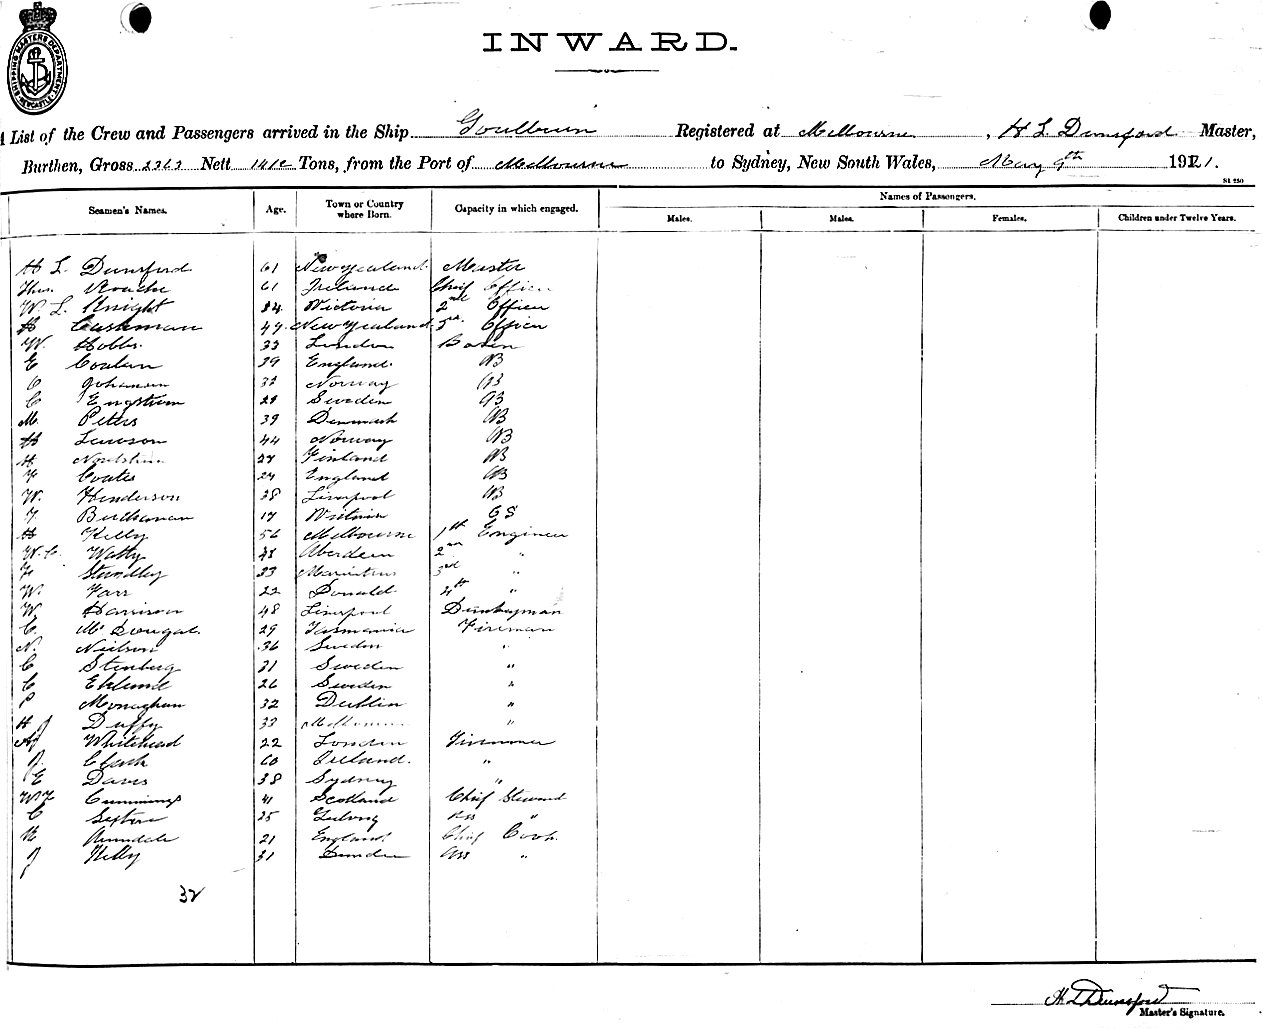 SHIPPING MASTERS DEPARTMENT NEWCASTLE
INWARD.
A List of the Crew and Passengers arrived in the Ship Goulburn Registered at Melbourne, H L Dunsford Master,
Burthen, Gross 2363 Nett Tons, from the Port of Melbourne to Sydney, New South Wales, May 9th 1921.
S1 250
Seamen's Names. Age. Town or Country where Born. Capacity in which engaged. Names of Passengers.
Males. Males. Females. Children under Twelve Years.
H L Dunsford 61 New Zealand Master
Thos. Roache 61 Ireland Chief Officer
W. L. Knight 34 Victoria 2nd Officer
H Cushman 49 New Zealand 3rd Officer
W. Hobbs 33 London Bosun
E 39 England. AB
C Johansen 32 Norway AB
C Engstrom 29 Sweden AB
M. Peters 39 Denmark AB
H Lawson 44 Norway AB
H Nordstrom 27 Finland AB
F Coates 27 England AB
W. Henderson 28 Liverpool AB
F. Buchanan 17 Victoria OS
H Kelly 56 Melbourne 1st Engineer
W. C. Watty 41 Aberdeen 2nd "
F Standley 33 Mauritius 3rd "
W. Farr 22 Donald 4th "
W Harrison 48 Liverpool Donkeyman
C. McDougal. 29 Tasmania Fireman
N. Neilson 36 Sweden "
C Stenberg 31 Sweden "
C Eklund 26 Sweden "
P Monaghan 32 Dublin "
H J Duffy 33 Melbourne "
AJ Whitehead 22 London Trimmer
J. Clark 60 Ireland. "
E Davis 38 Sydney "
W F Cummings 41 Scotland Chief Steward
C Sexton 25 Geelong Ass "
H Arundale 21 England. Chief Cook
J Kelly 31 Ass "
32
H L Dunsford
Master's Signature.